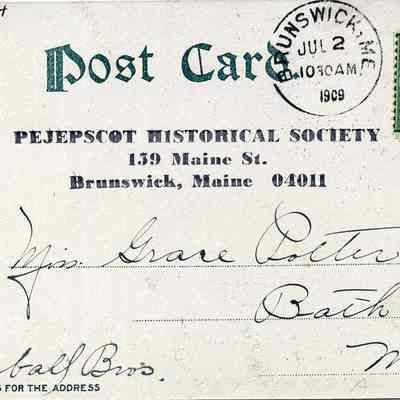 Post Card
BRUNSWICK, ME.
JUL 2
1030AM
1909
PEJEPSCOT HISTORICAL SOCIETY
159 Maine St.
Brunswick, Maine 04011
Miss. Grace Potter
Bath
M
ball Bros.
FOR THE ADDRESS